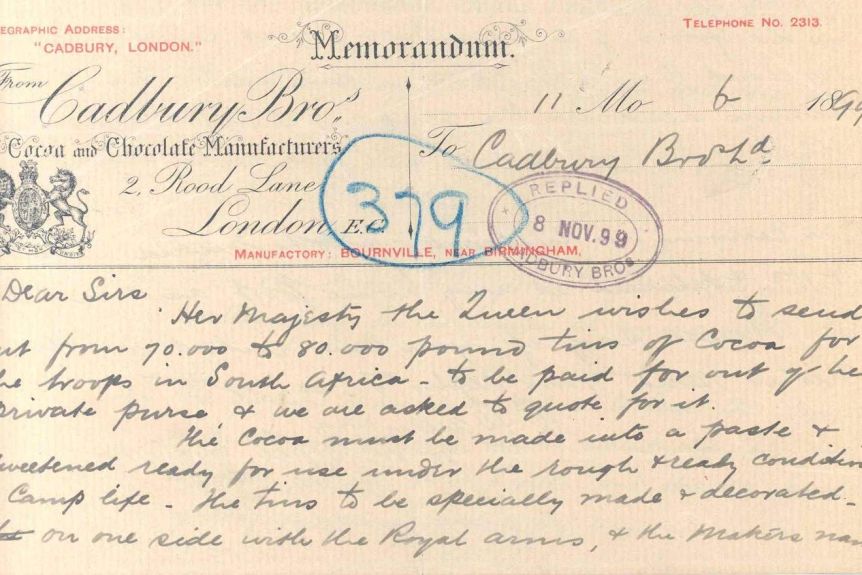 EGRAPHIC ADDRESS:
"CADBURY, LONDON."
Memorandum.
TELEPHONE No. 2313.
From
Cadbury Bros.
Cocoa and Chocolate Manufacturers
2, Rood Lane
London, E.C.
MANUFACTORY: BOURNVILLE, NEAR BIRMINGHAM,
379
11 Mo 6 1899
To Cadbury Bros Ld
REPLIED
8 NOV. 99
DBURY BROS
Dear Sirs
Her Majesty the Queen wishes to send
ut from 70.000 to 80.000 pound tins of Cocoa for
he troops in South Africa - to be paid for out of he
private purse & we are asked to quote for it.
The Cocoa must be made into a paste &
sweetened ready for use under the rough & ready condition
Camp life - The tins to be specially made & decorated -
on one side with the Royal arms, & the Makers nam